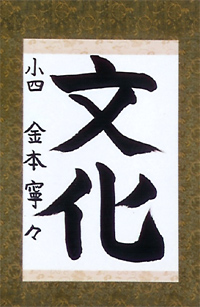 文化
小四 金本寧々